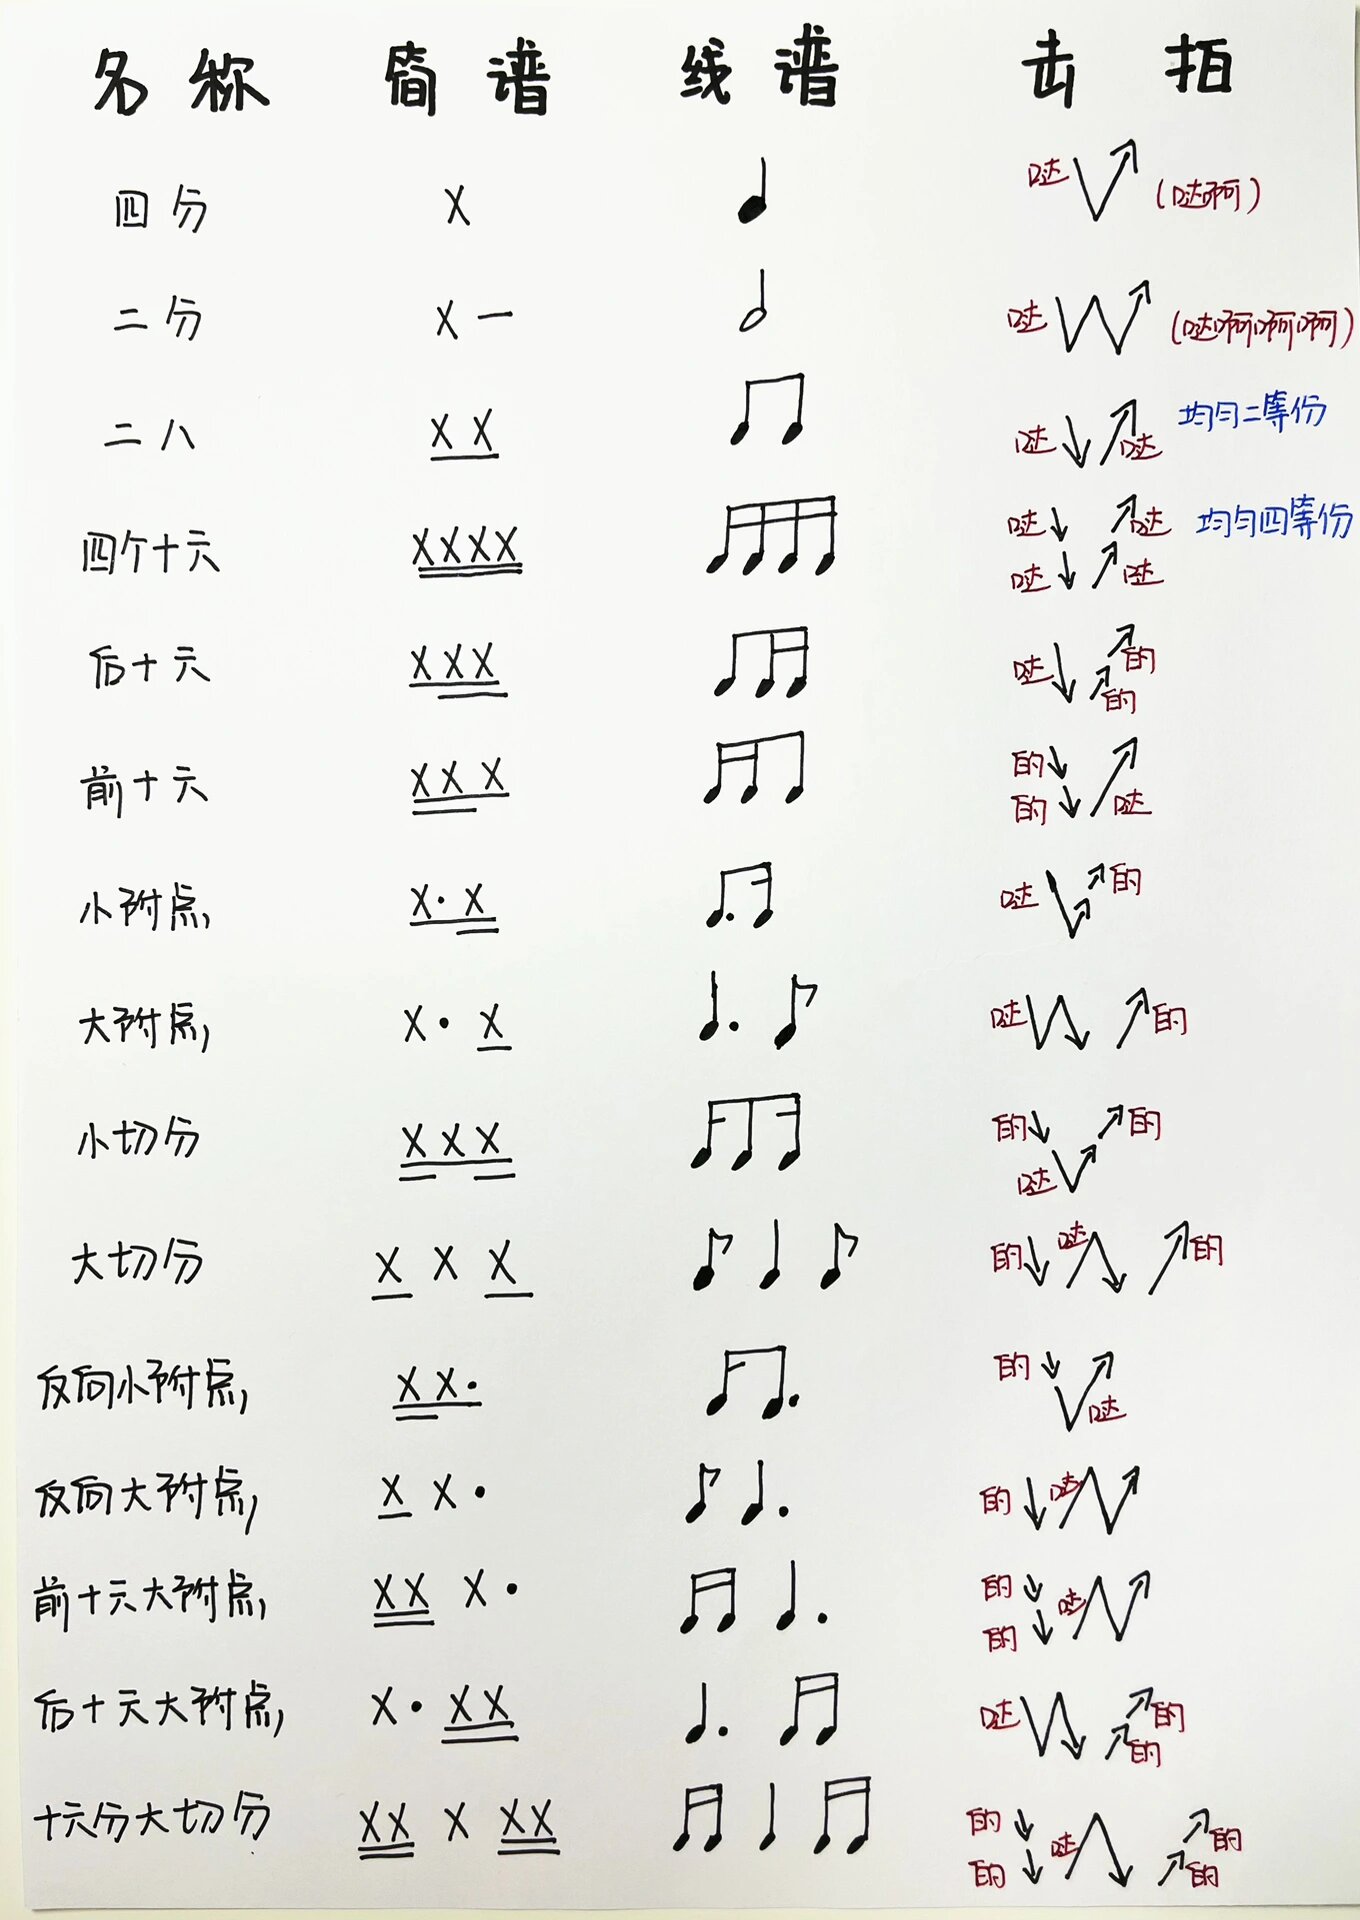 名称 简谱 线谱 击拍
四分 X 哒 (哒啊)
二分 X — 哒 (哒啊啊啊)
二八 X X 哒 哒 均匀二等份
四个十六 XXXX 哒 哒 哒 哒 均匀四等份
后十六 XXX 哒 的 的
前十六 XXX 的 的 哒
小附点 X· X 哒 的
大附点 X · X 哒 的
小切分 X X X 的 哒 的
大切分 X X X 的 哒 的
反向小附点 X X· 的 哒
反向大附点 X X · 的 哒
前十六大附点 XX X · 的 的 哒
后十六大附点 X · XX 哒 的 的
十六分大切分 XX X XX 的 的 哒 的 的